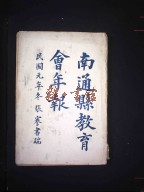 南通縣教育
會年報
民國元年冬張謇書耑